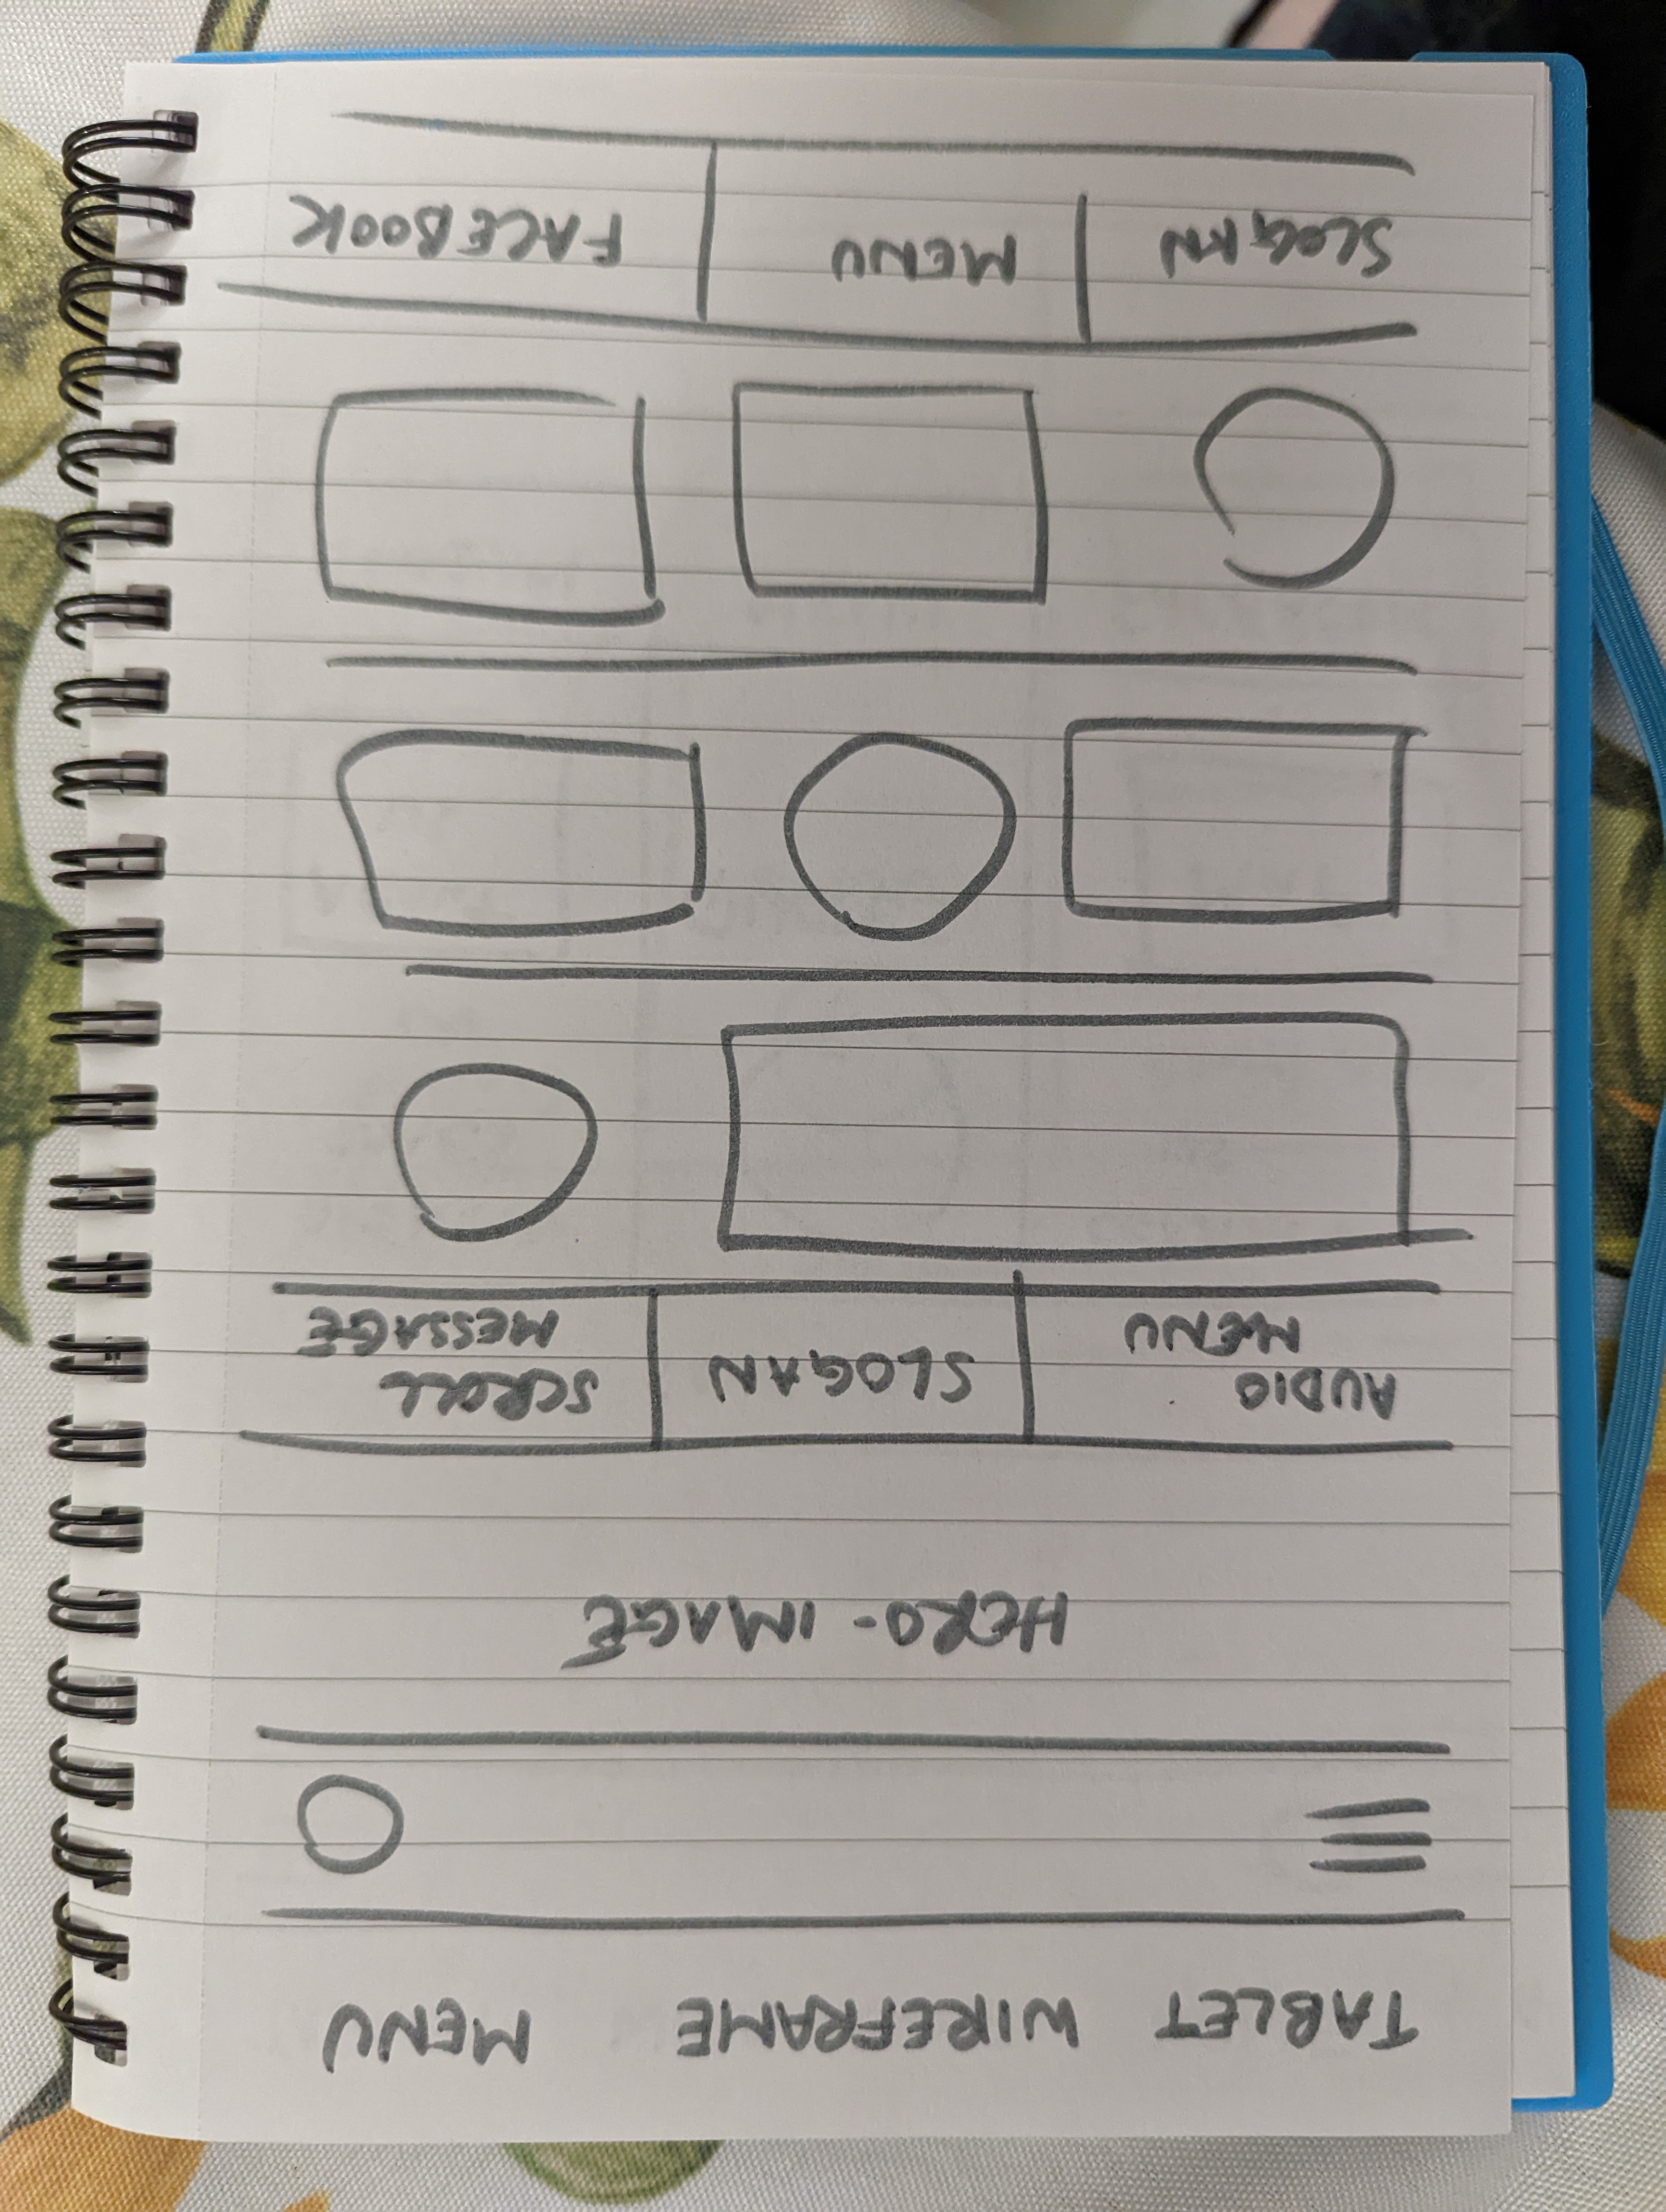 TABLET WIREFRAME MENU
HERO-IMAGE
AUDIO
MENU
SLOGAN
SCROLL
MESSAGE
SLOGAN
MENU
FACEBOOK